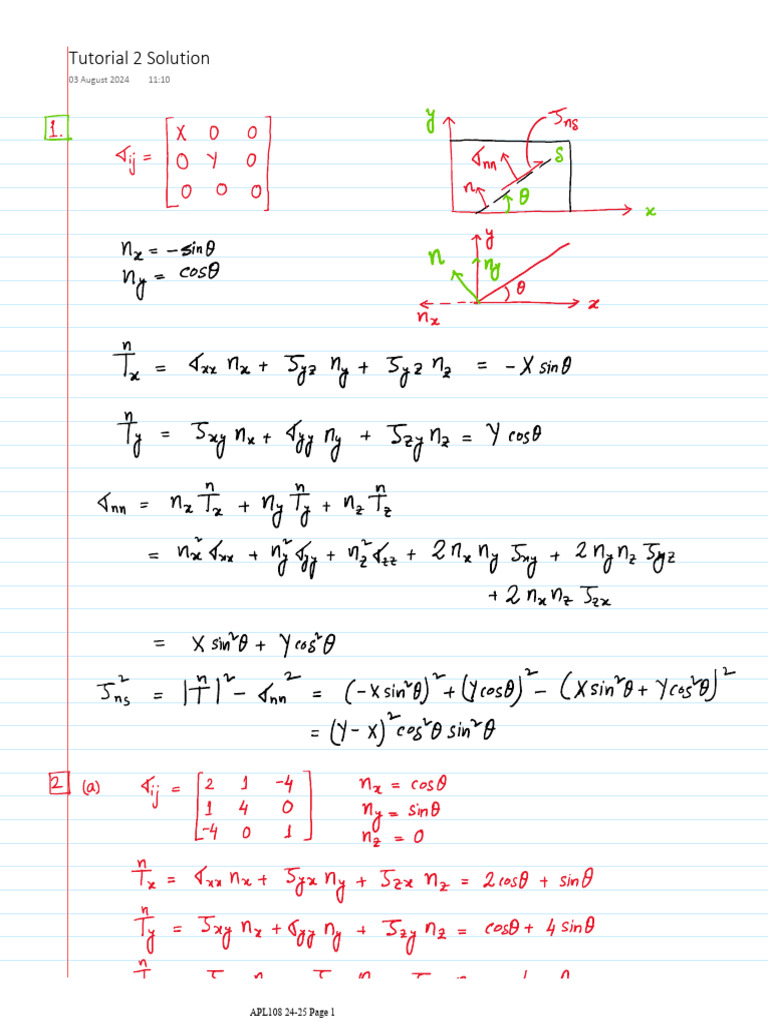 Tutorial 2 Solution
03 August 2024 11:10
1.
σij = [X 0 0
0 Y 0
0 0 0]
y
σnn
τns
s
n
θ
x
nx = -sinθ
ny = cosθ
n
ny
y
θ
x
nx
Tⁿx = σxx nx + τyz ny + τyz nz = -X sinθ
Tⁿy = τxy nx + σyy ny + τzy nz = Y cosθ
σnn = nx Tⁿx + ny Tⁿy + nz Tⁿz
= nx² σxx + ny² σyy + nz² σzz + 2 nx ny τxy + 2 ny nz τyz
+ 2 nx nz τzx
= X sin²θ + Y cos²θ
τns² = |Tⁿ|² - σnn² = (-X sin²θ)² + (Y cosθ)² - (X sin²θ + Y cos²θ)²
= (Y - X)² cos²θ sin²θ
2 (a) σij = [2 1 -4
1 4 0
-4 0 1]
nx = cosθ
ny = sinθ
nz = 0
Tⁿx = σxx nx + τyx ny + τzx nz = 2cosθ + sinθ
Tⁿy = τxy nx + σyy ny + τzy nz = cosθ + 4 sinθ
APL108 24-25 Page 1